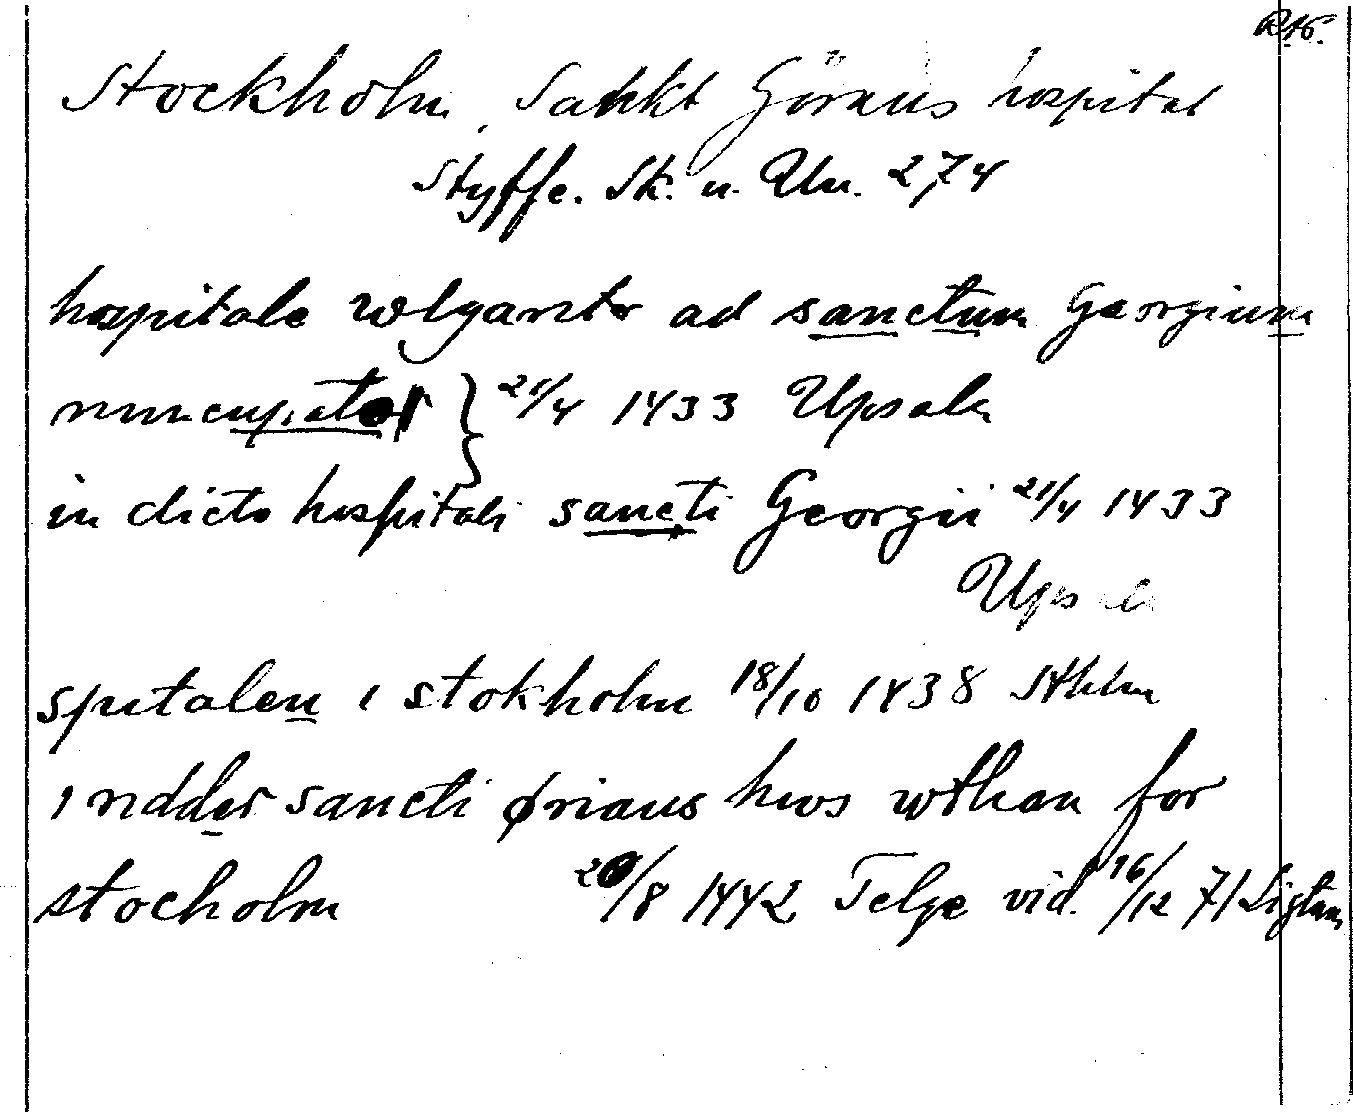 R16.
Stockholm, Sankt Görans hospital
Styffe. Sk. u. Un. 274
hospitale wlgariter ad sanctum Georgium
nuncupator } 21/4 1433 Upsala
in dicto hospitali sancti Georgii 21/4 1433
Upsala
spitalen i stokholm 18/10 1438 Sthlm
i riddar sancti ørians hws wthan for
stocholm 20/8 1442 Telge vid. 16/12 71